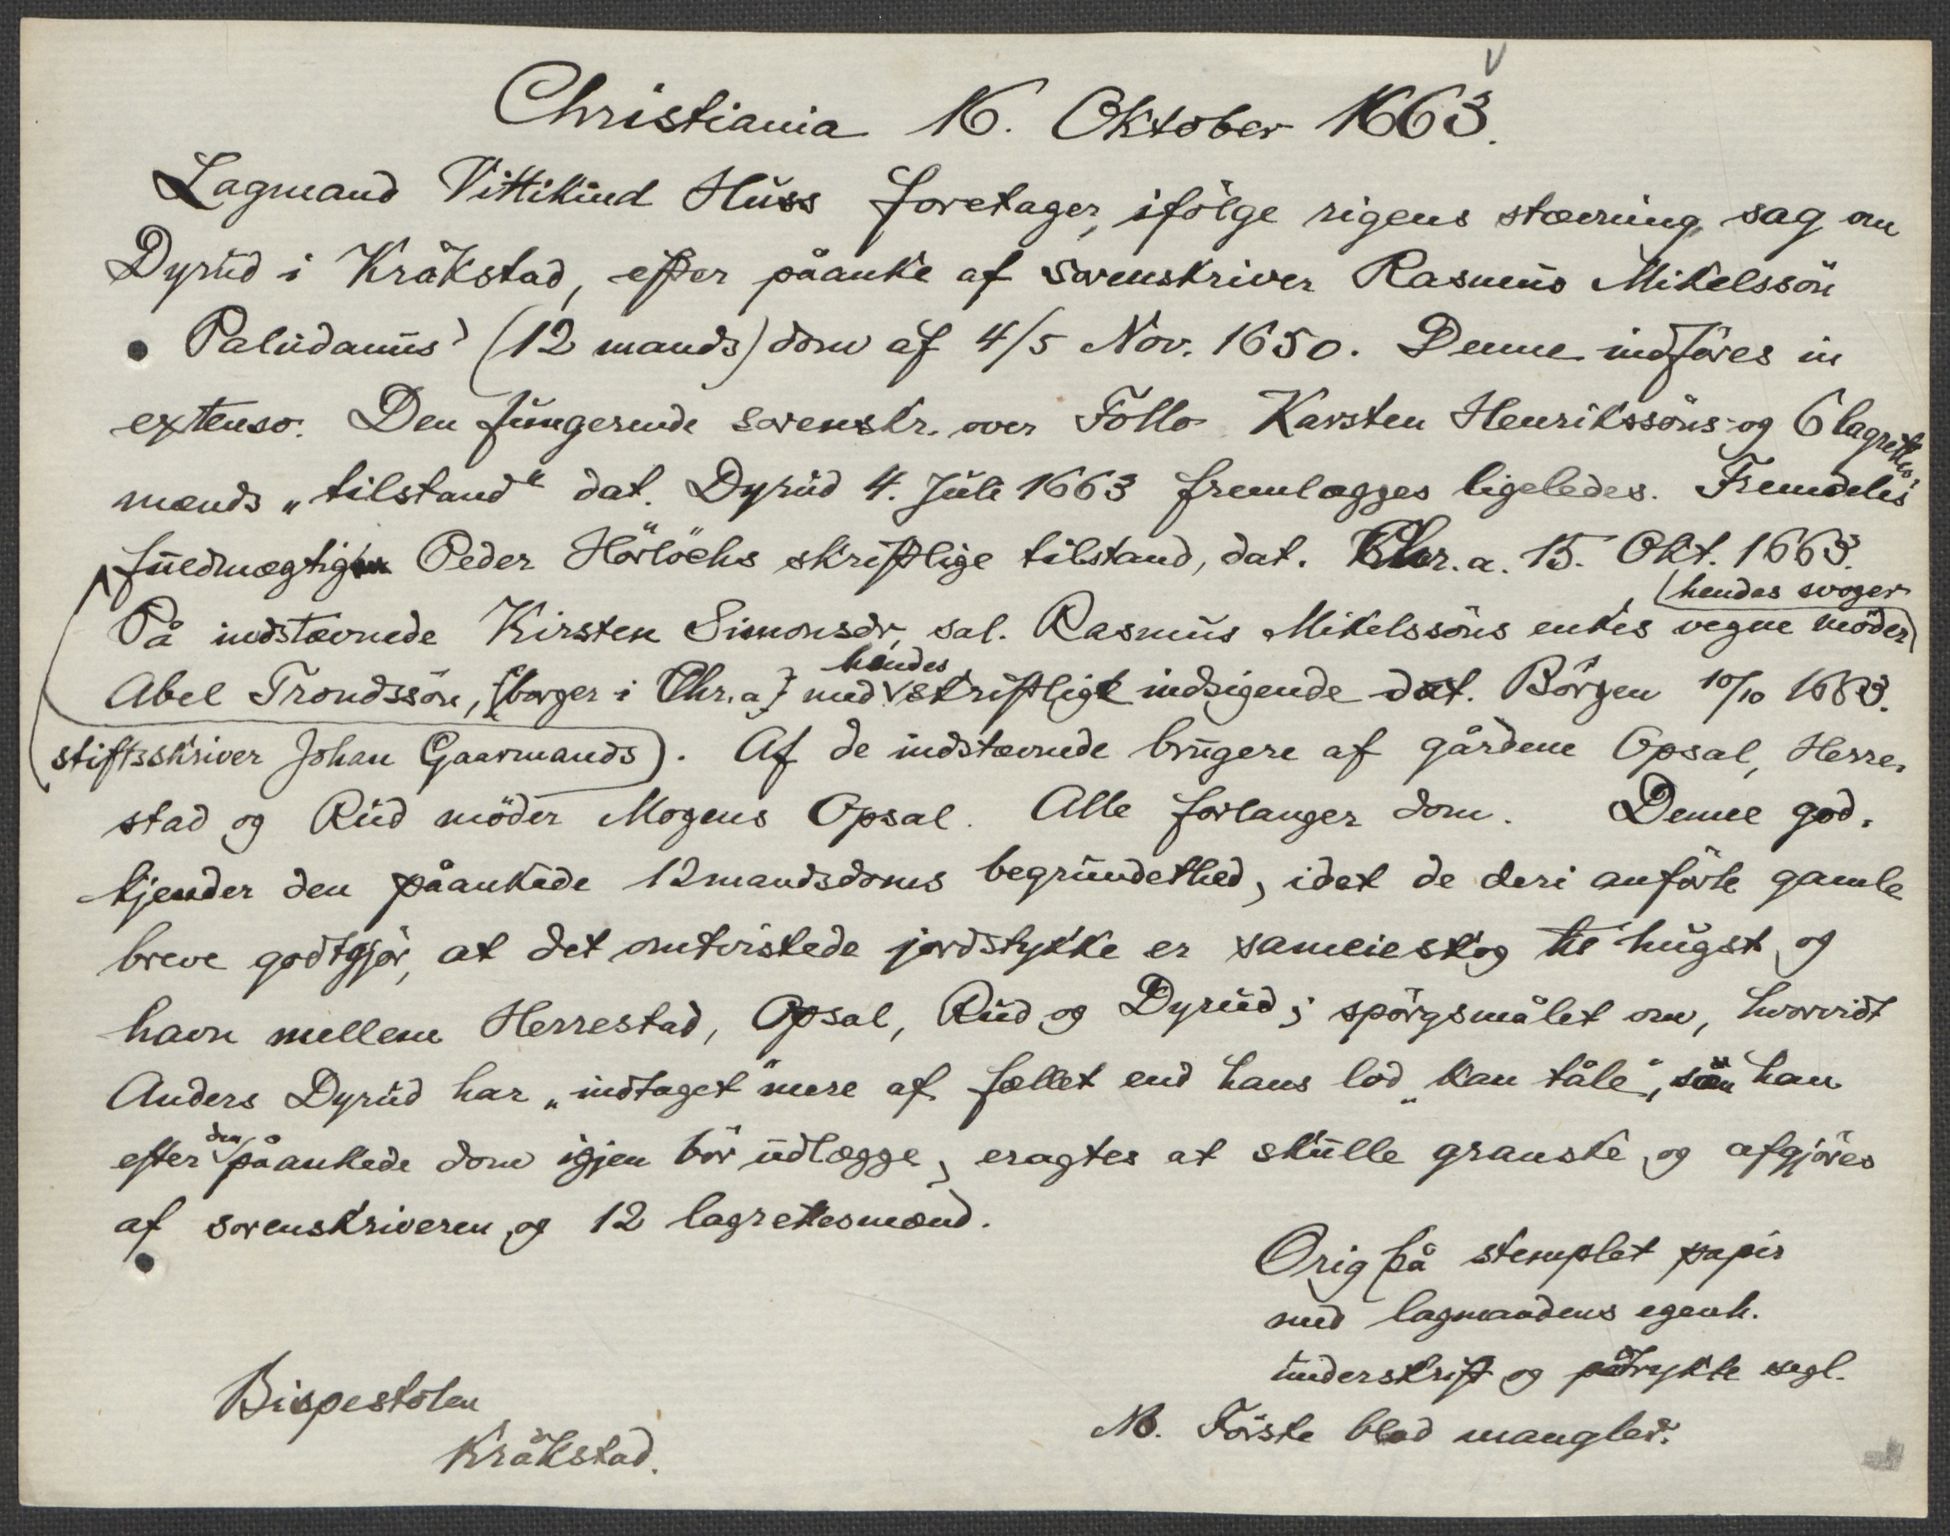 Christiania 16. Oktober 1663.
Lagmand Vittikind Huss foretager, ifölge rigens stævning, sag om
Dyrud i Kråkstad, efter påanke af sorenskriver Rasmus Mikelssön
Paludanus' (12 mands) dom af 4/5 Nov. 1650. Denne indföres in
extenso. Den fungerende sorenskr. over Follo Karsten Henrikssöns og 6 lagrettes-
mænds „tilstand“ dat. Dyrud 4. Juli 1663 fremlægges ligeledes. Fremdeles
fuldmægtig Peder Hörlöchs skriftlige tilstand, dat. Chr.a. 15. Okt. 1663.
På indstævnede Kirsten Simonsdr, sal. Rasmus Mikelssöns enkes vegne möder hendes svoger
Abel Trondssön, [borger i Chr.a] med hendes skriftlige indsigende dat. Börgen 10/10 1663.
stiftsskriver Johan Gaarmands). Af de indstævnede brugere af gårdene Opsal, Herre-
stad og Rud möder Mogens Opsal. Alle forlanger dom. Denne god-
kjender den påankede 12mandsdoms begrundethed, idet de deri anförte gamle
breve godtgjör, at det omtvistede jordstykke er sameieskog til hugst og
havn mellem Herrestad, Opsal, Rud og Dyrud; spörgsmålet om, hvorvidt
Anders Dyrud har „indtaget“ mere af fællet end hans lod „kan tåle“, som han
efter den påankede dom igjen bör udlægge, eragtes at skulle granske og afgjöres
af sorenskriveren og 12 lagrettesmænd.
Orig på stemplet papir
med lagmandens egenh.
underskrift og påtrykte segl.
NB. Förste blad mangler.
Bispestolen
Kråkstad.